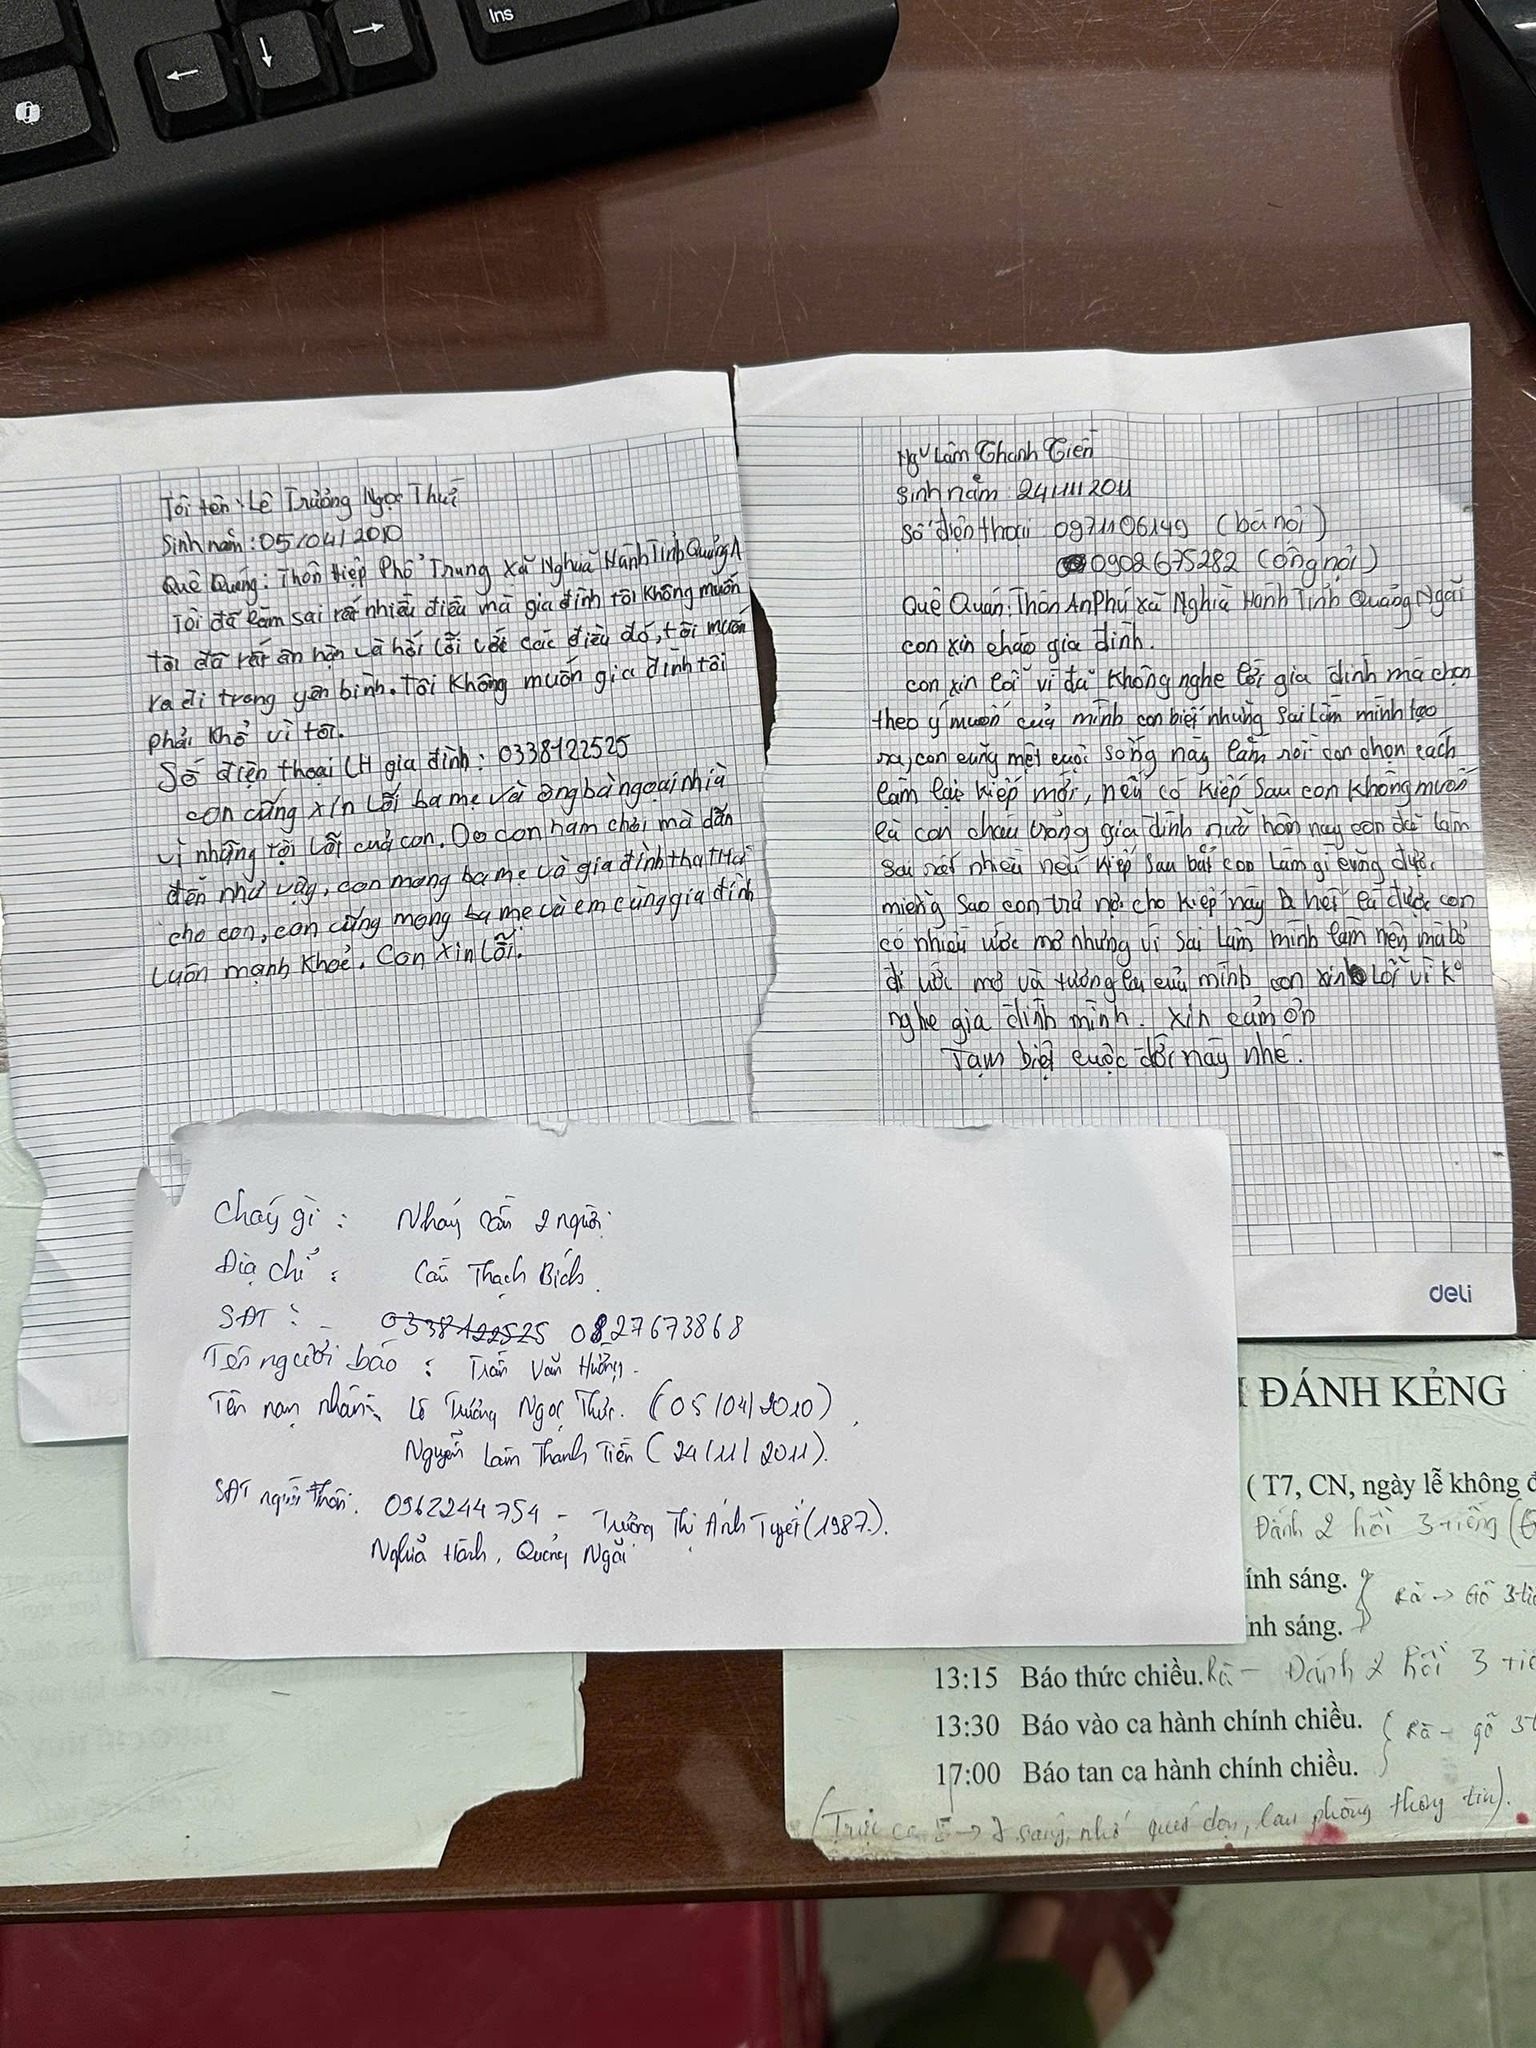 Ins
Tôi tên: Lê Trương Ngọc Thư
Sinh năm: 05/04/2010
Quê Quáng: Thôn Hiệp Phổ Trung Xã Nghĩa Hành Tỉnh Quảng
Tôi đã làm sai rất nhiều điều mà gia đình tôi không muốn
tôi đã rất ân hận và hối lỗi với các điều đó, tôi muốn
ra đi trong yên bình. Tôi không muốn gia đình tôi
phải khổ vì tôi.
Số điện thoại LH gia đình: 0338122525
con cũng xin lỗi ba mẹ và ông bà ngoại nhìa
vì những tội lỗi của con. Do con ham chơi mà dẫn
đến như vậy, con mong ba mẹ và gia đình tha thứ
cho con, con cũng mong ba mẹ và em cùng gia đình
luôn mạnh khoẻ. Con xin lỗi.
Lâm Thanh Tiến
Sinh năm: 24/11/2011
Số điện thoại 0971106149 (bà nội)
0902675282 (ông nội)
Quê Quán: Thôn An Phú xã Nghĩa Hành Tỉnh Quảng Ngãi
con xin chào gia đình.
con xin lỗi vì đã không nghe lời gia đình mà chọn
theo ý muốn của mình con biết những sai lầm mình tạo
ra, con cũng mệt cuộc sống này lắm rồi con chọn cách
làm lại kiếp mới, nếu có kiếp sau con không muốn
là con cháu trong gia đình nữa hôm nay con đã làm
sai rất nhiều nếu kiếp sau bắt con làm gì cũng được
miễng sao con trả nợ cho kiếp này hết là được con
có nhiều ước mơ nhưng vì sai lầm mình làm nên mà bỏ
đi ước mơ và tương lai của mình con xin lỗi vì k°
nghe gia đình mình. xin cảm ơn
Tạm biệt cuộc đời này nhé.
deli
Cháy gì: Nhảy cầu 2 người.
Địa chỉ: Cầu Thạch Bích.
SĐT: 0338122525 0827673868
Tên người báo: Trần Văn Hưởng.
Tên nạn nhân: Lê Trương Ngọc Thư. (05/04/2010),
Nguyễn Lâm Thanh Tiến (24/11/2011).
SĐT người thân: 0962244754 - Trương Thị Ánh Tuyết (1987).
Nghĩa Hành, Quảng Ngãi
ĐÁNH KẺNG
(T7, CN, ngày lễ không
Đánh 2 hồi 3 tiếng
ính sáng. Rã → Gõ 3
nh sáng.
13:15 Báo thức chiều. Rã - Đánh 2 hồi 3
13:30 Báo vào ca hành chính chiều. Rã - gõ
17:00 Báo tan ca hành chính chiều.
(Trực ca sáng, nhớ quét dọn, lau phòng thông tin).